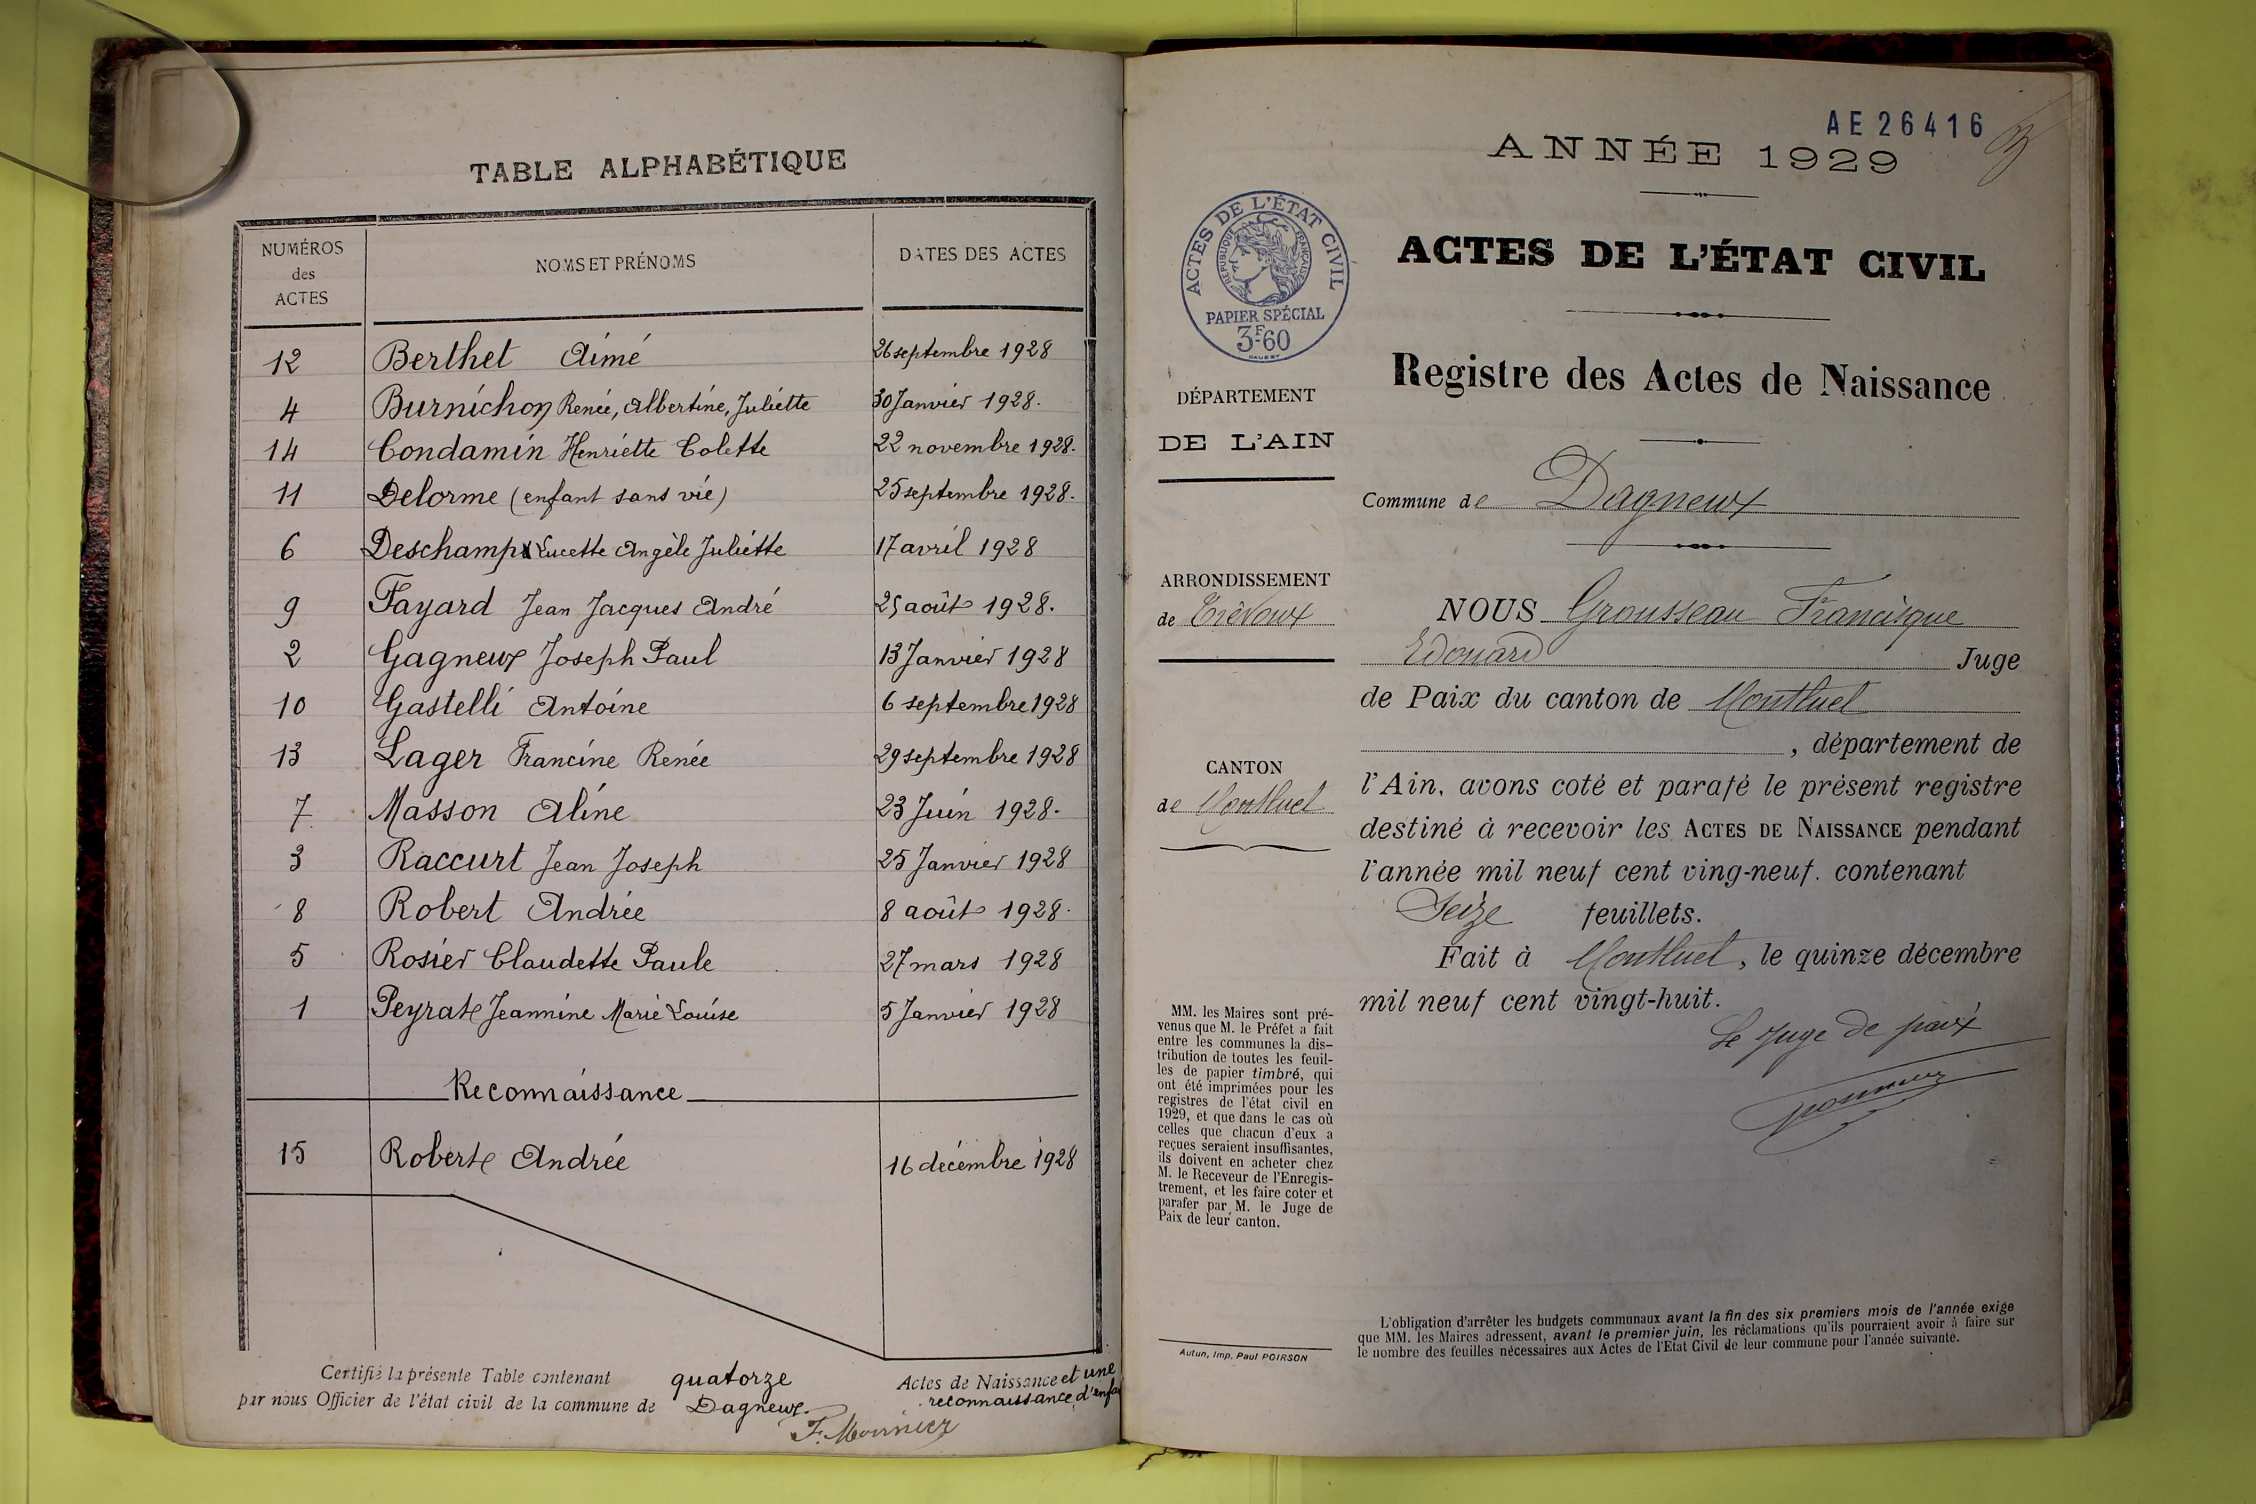 TABLE ALPHABÉTIQUE
NUMÉROS des ACTES
NOMS ET PRÉNOMS
DATES DES ACTES
12 Berthet Aimé 26 septembre 1928
4 Burnichon Renée, Albertine, Juliette 30 Janvier 1928.
14 Condamin Henriette Colette 22 novembre 1928.
11 Delorme (enfant sans vie) 25 septembre 1928.
6 Deschamp Lucette Angèle Juliette 17 avril 1928
9 Fayard Jean Jacques André 25 août 1928.
2 Gagneux Joseph Paul 13 Janvier 1928
10 Gastelli Antoine 6 septembre 1928
13 Lager Francine Renée 29 septembre 1928
7 Masson Aline 23 Juin 1928.
3 Raccurt Jean Joseph 25 Janvier 1928
8 Robert Andrée 8 août 1928.
5 Rosier Claudette Paule 27 mars 1928
1 Peyrat Jeannine Marie Louise 5 Janvier 1928
Reconnaissance
15 Robert Andrée 16 décembre 1928
Certifié la présente Table contenant quatorze Actes de Naissance et une
reconnaissance d'enfa
par nous Officier de l'état civil de la commune de Dagneux.
AE 26416
ANNÉE 1929
ACTES DE L'ÉTAT CIVIL
RÉPUBLIQUE FRANÇAISE
PAPIER SPÉCIAL
3F60
ACTES DE L'ÉTAT CIVIL
Registre des Actes de Naissance
DÉPARTEMENT
DE L'AIN
Commune de Dagneux
ARRONDISSEMENT
de Trévoux
CANTON
de Montluel
NOUS Grousseau Francisque
Edouard Juge
de Paix du canton de Montluel
, département de
l'Ain, avons coté et parafé le présent registre
destiné à recevoir les ACTES DE NAISSANCE pendant
l'année mil neuf cent ving-neuf. contenant
Seize feuillets.
Fait à Montluel, le quinze décembre
mil neuf cent vingt-huit.
Le Juge de paix
MM. les Maires sont pré-
venus que M. le Préfet a fait
entre les communes la dis-
tribution de toutes les feuil-
les de papier timbré, qui
ont été imprimées pour les
registres de l'état civil en
1929, et que dans le cas où
celles que chacun d'eux a
reçues seraient insuffisantes,
ils doivent en acheter chez
M. le Receveur de l'Enregis-
trement, et les faire coter et
parafer par M. le Juge de
Paix de leur canton.
Autun, Imp. Paul POIRSON
L'obligation d'arrêter les budgets communaux avant la fin des six premiers mois de l'année exige
que MM. les Maires adressent, avant le premier juin, les réclamations qu'ils pourraient avoir à faire sur
le nombre des feuilles nécessaires aux Actes de l'Etat Civil de leur commune pour l'année suivante.